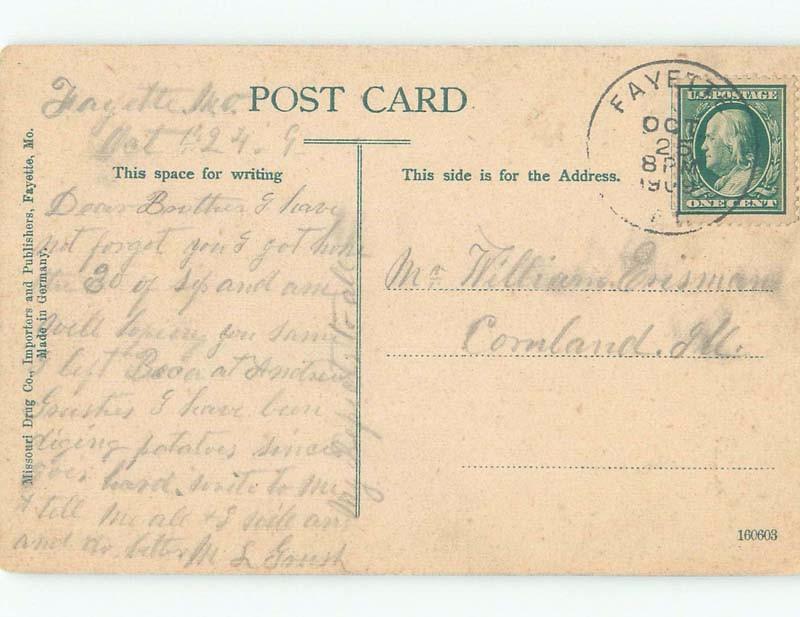 POST CARD
Fayette, Mo.
Oct 24, 9
This space for writing
This side is for the Address.
Dear Brother I have
not forget you I got home
the 30 of Sep and am
well hoping you same
I left at Andrew
I have been
diging potatoes since
hard. write to me
& tell me all & I will an
and do better M L Grush
my to all
Mr. William Erisman
Cornland. Ill.
Missouri Drug Co., Importers and Publishers, Fayette, Mo.
Made in Germany.
FAYETTE
OCT
25
8 PM
1909
U.S. POSTAGE
ONE CENT
160603